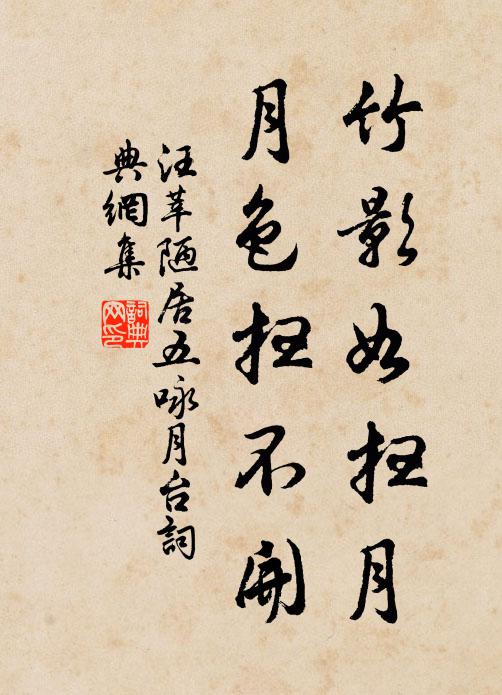 竹影如掃月
月色掃不開
汪莘陋居五咏月台詞
典網集
詞典
网印